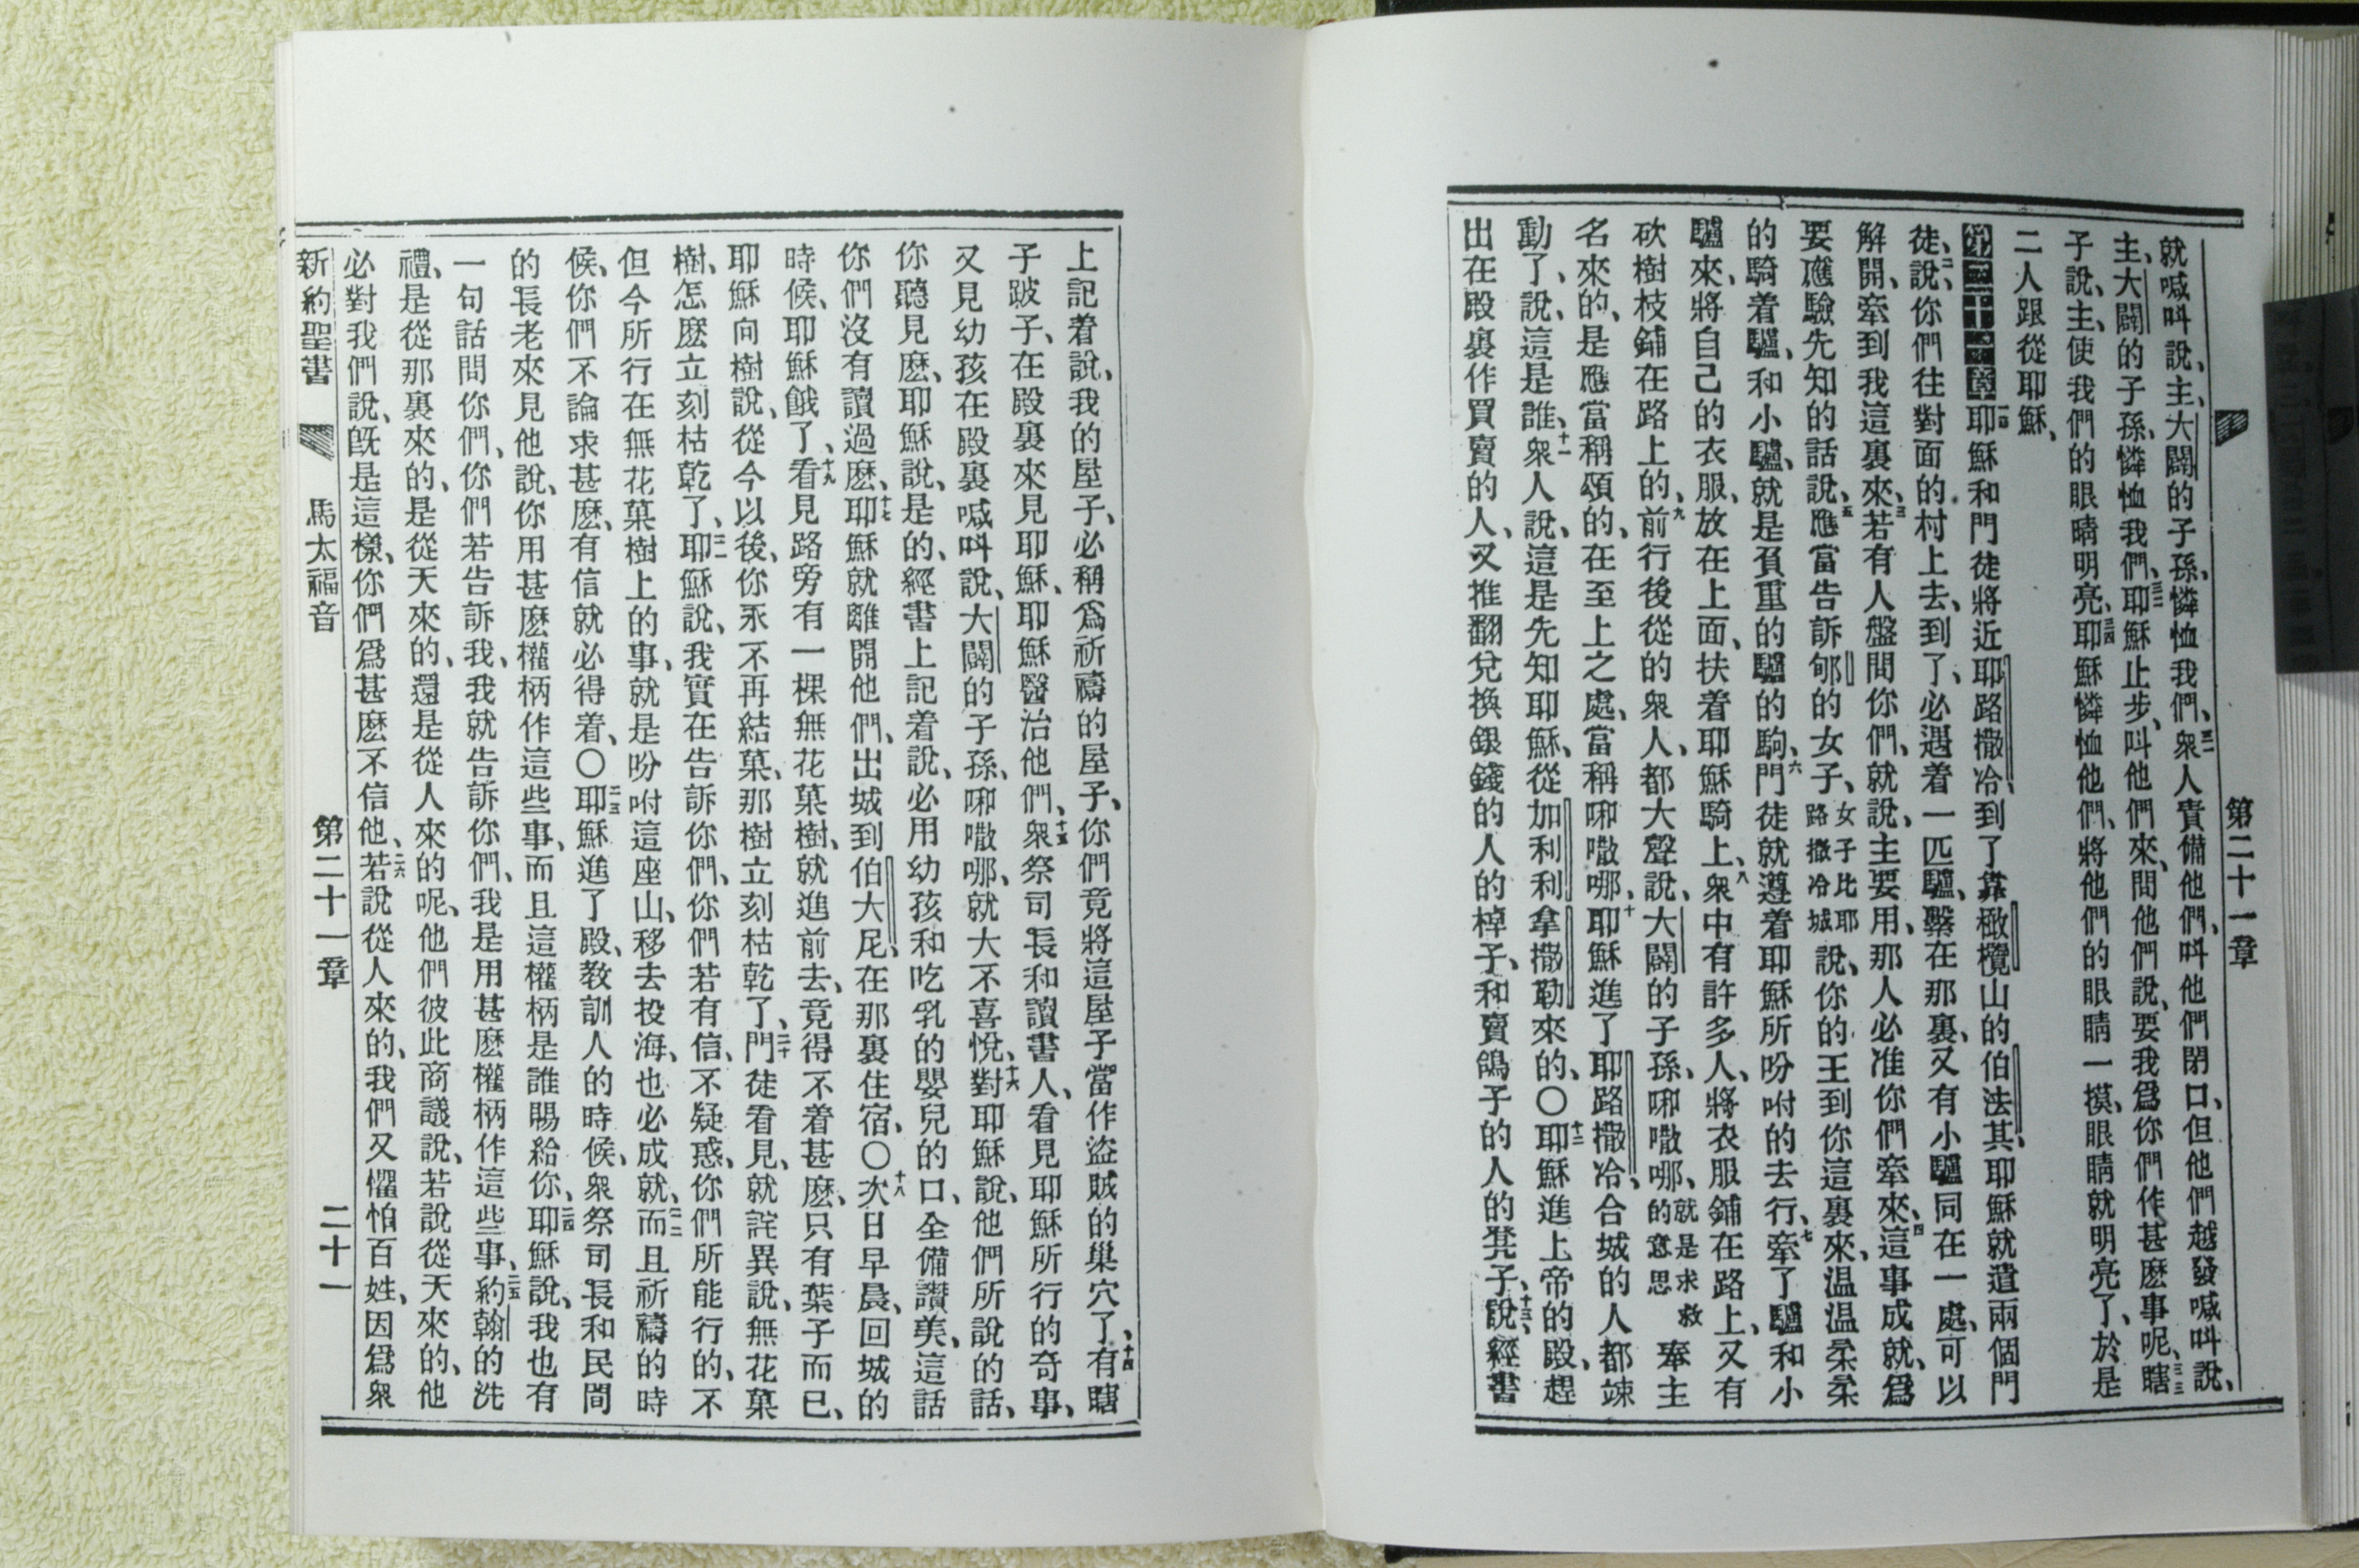 第二十一章
就喊叫說、主、大闢的子孫、憐恤我們、三一衆人責備他們、叫他們閉口、但他們越發喊叫說、
主、大闢的子孫、憐恤我們、三二耶穌止步、叫他們來、問他們說、要我爲你們作甚麽事呢、三三瞎
子說、主、使我們的眼睛明亮、三四耶穌憐恤他們、將他們的眼睛一摸、眼睛就明亮了、於是
二人跟從耶穌、
第二十一章一耶穌和門徒將近耶路撒冷、到了靠橄欖山的伯法其、耶穌就遣兩個門
徒、二說、你們往對面的村上去、到了、必遇着一匹驢、繫在那裏、又有小驢同在一處、可以
解開、牽到我這裏來、三若有人盤問你們、就說、主要用、那人必准你們牽來、四這事成就、爲
要應驗先知的話說、五應當告訴郇的女子、女子比耶路撒冷城說、你的王到你這裏來、温温柔柔
的騎着驢、和小驢、就是負重的驢的駒、六門徒就遵着耶穌所吩咐的去行、七牽了驢和小
驢來、將自己的衣服、放在上面、扶着耶穌騎上、八衆中有許多人、將衣服鋪在路上、又有
砍樹枝鋪在路上的、九前行後從的衆人、都大聲說、大闢的子孫、㖿㗔哪、就是求救的意思奉主
名來的、是應當稱頌的、在至上之處、當稱㖿㗔哪、十耶穌進了耶路撒冷、合城的人都竦
動了、說、這是誰、十一衆人說、這是先知耶穌、從加利利拿撒勒來的、○十二耶穌進上帝的殿、趕
出在殿裏作買賣的人、又推翻兌換銀錢的人的棹子、和賣鴿子的人的凳子、十三說、經書
上記着說、我的屋子、必稱爲祈禱的屋子、你們竟將這屋子當作盜賊的巢穴了、十四有瞎
子跛子、在殿裏來見耶穌、耶穌醫治他們、十五衆祭司長和讀書人、看見耶穌所行的奇事、
又見幼孩在殿裏喊叫說、大闢的子孫、㖿㗔哪、就大不喜悅、十六對耶穌說、他們所說的話、
你聽見麽、耶穌說、是的、經書上記着說、必用幼孩和吃乳的嬰兒的口、全備讚美、這話
你們沒有讀過麽、十七耶穌就離開他們、出城到伯大尼、在那裏住宿、○十八次日早晨、回城的
時候、耶穌餓了、十九看見路旁有一棵無花菓樹、就進前去、竟得不着甚麽、只有葉子而已、
耶穌向樹說、從今以後、你永不再結菓、那樹立刻枯乾了、二十門徒看見、就詫異說、無花菓
樹、怎麽立刻枯乾了、二一耶穌說、我實在告訴你們、你們若有信、不疑惑、你們所能行的、不
但今所行在無花菓樹上的事、就是吩咐這座山、移去投海、也必成就、二二而且祈禱的時
候、你們不論求甚麽、有信就必得着、○二三耶穌進了殿、教訓人的時候、衆祭司長和民間
的長老來見他說、你用甚麽權柄作這些事、而且這權柄是誰賜給你、二四耶穌說、我也有
一句話問你們、你們若告訴我、我就告訴你們、我是用甚麽權柄作這些事、二五約翰的洗
禮、是從那裏來的、是從天來的、還是從人來的呢、他們彼此商議說、若說從天來的、他
必對我們說、旣是這樣、你們爲甚麽不信他、二六若說從人來的、我們又懼怕百姓、因爲衆
新約聖書　馬太福音　第二十一章　二十一